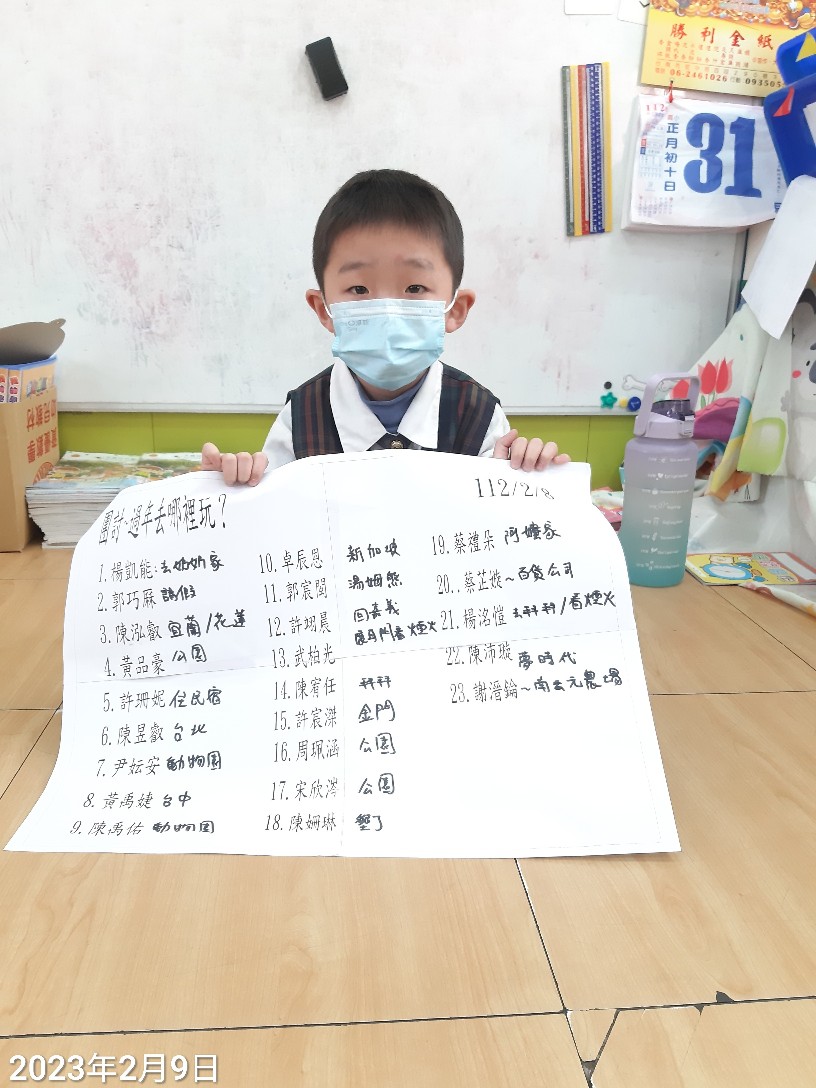 勝利金紙
06-2461026
093505
112
正月初十日
31
團討~過年去哪裡玩?
112/2/8
1.楊凱能:去奶奶家
2.郭巧庥 請假
3.陳泓叡 宜蘭/花蓮
4.黃品豪 公園
5.許珊妮 住民宿
6.陳昱叡 台北
7.尹妘安 動物園
8.黃禹婕 台中
9.陳禹佑 動物園
10.卓辰恩 新加坡
11.郭宸閎 湯姆熊
12.許翊晨 回嘉義
13.武柏光 門看煙火
14.陳宥任 科科
15.許宸濝 金門
16.周珮涵 公園
17.宋欣澪 公園
18.陳姍琳 墾丁
19.蔡禮朵 阿嬤家
20.蔡芷 ~百貨公司
21.楊洺愷 去科科/看煙火
22.陳沛璇 夢時代
23.謝溍錀~南去元農場
2023年2月9日